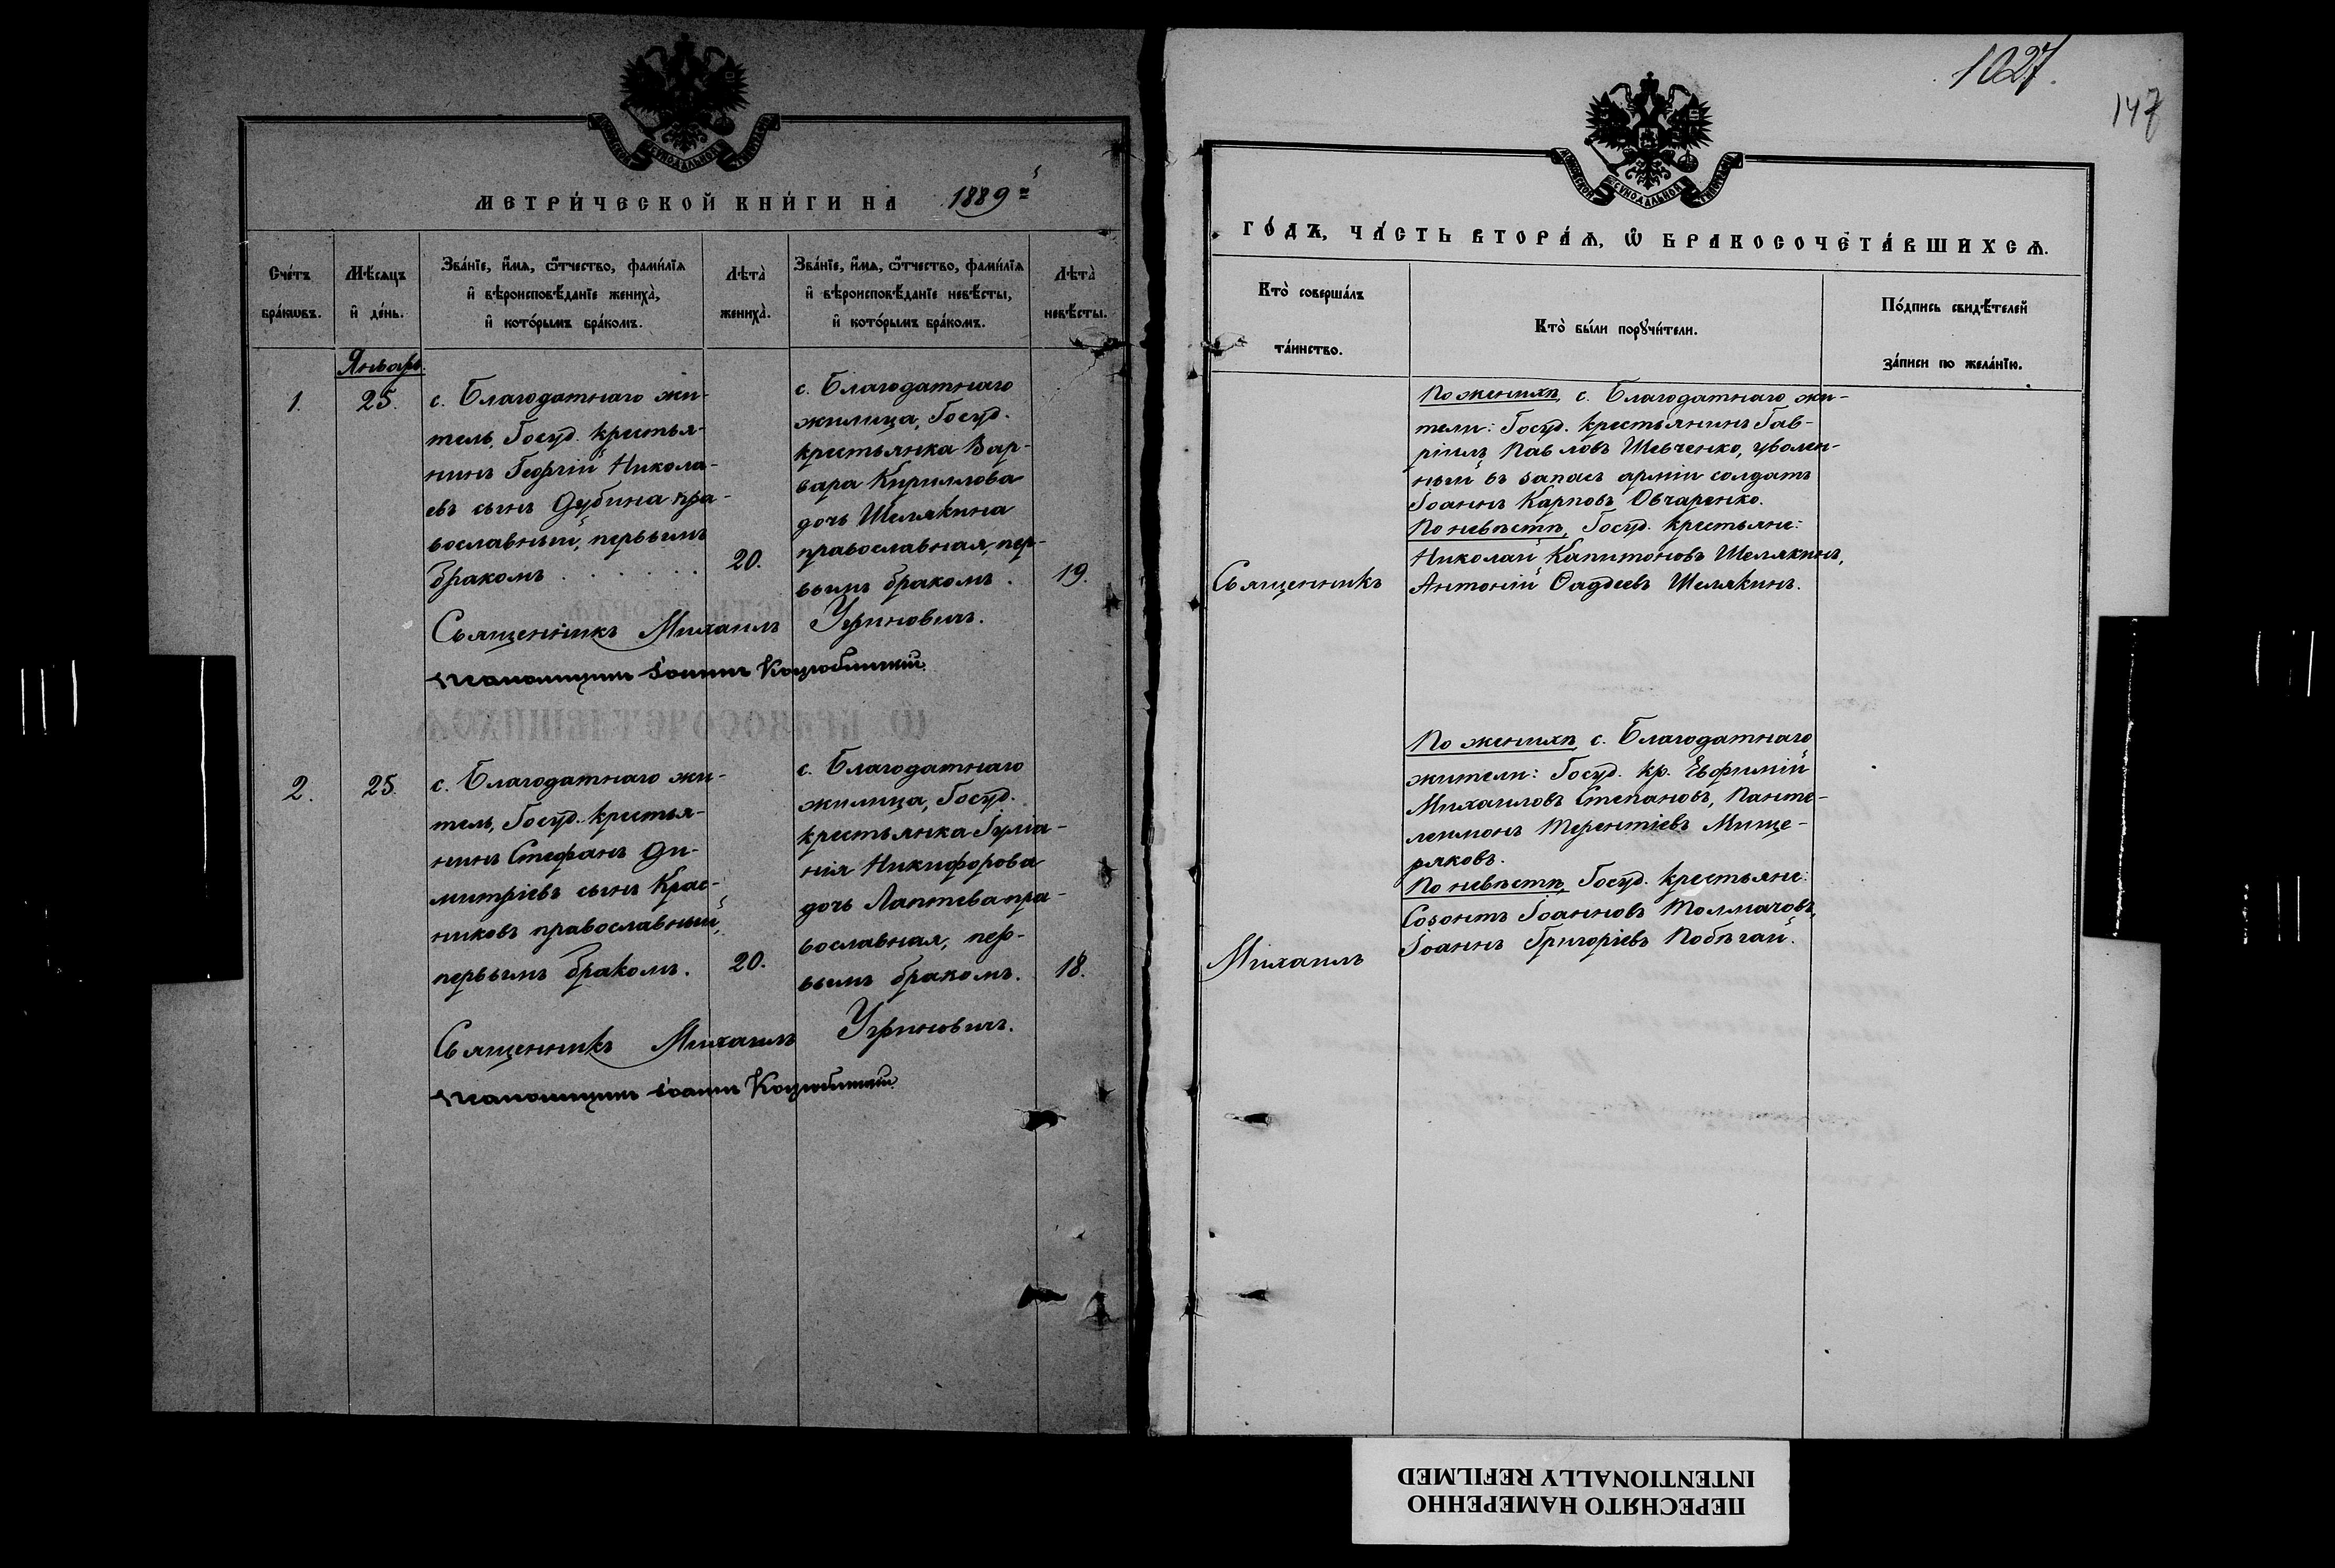 1027.
147
МЕТРИ́ЧЕСКОЙ КНИ́ГИ НА 1889й
Сче́тъ бра́кѡвъ.
Мѣ́сяцъ и҆ де́нь.
Зва́нїе, и҆́мѧ, ѻ҆́тчество, фами́лїѧ
и҆ вѣроисповѣ́данїе жениха̀,
и҆ кото́рымъ бра́комъ.
Лѣта̀ жениха̀.
Зва́нїе, и҆́мѧ, ѻ҆́тчество, фами́лїѧ
и҆ вѣроисповѣ́данїе невѣ́сты,
и҆ кото́рымъ бра́комъ.
Лѣта̀ невѣ́сты.
Январь.
1.
25.
с. Благодатнаго жи-
тель, Госуд. крестья-
нинъ Георгій Никола-
евъ сынъ Дубина пра-
вославный, первымъ
бракомъ . . . . . .
20.
с. Благодатнаго
жилица, Госуд.
крестьянка Вар-
вара Кириллова
дочь Шелякина
православная, пер-
вымъ бракомъ.
19.
Священникъ Михаилъ Угриновичъ.
Псаломщикъ Іоаннъ Коцюбинскій.
2.
25.
с. Благодатнаго жи-
тель, Госуд. крестья-
нинъ Стефанъ Ди-
митріевъ сынъ Крас-
никовъ православный,
первымъ бракомъ.
20.
с. Благодатнаго
жилица, Госуд.
крестьянка Іуліа-
нія Никифорова
дочь Лаптева пра-
вославная, пер-
вымъ бракомъ.
18.
Священникъ Михаилъ Угриновичъ.
Псаломщикъ Іоаннъ Коцюбинскій
ГО́ДЪ, ЧА́СТЬ ВТОРА́Ѧ, Ѡ҆ БРАКОСОЧЕТА́ВШИХСѦ.
Кто̀ соверша́лъ
та́инство.
Кто̀ бы́ли порꙋчи́тели.
По́дпись свидѣ́телей
за́писи по жела́нїю.
По женихѣ, с. Благодатнаго жи-
тели: Госуд. крестьянинъ Гав-
ріилъ Павловъ Шевченко, уволен-
ный въ запасъ арміи солдатъ
Іоаннъ Карповъ Овчаренко.
По невѣстѣ, Госуд. крестьяне:
Николай Капитоновъ Шелякинъ,
Антоній Ѳадѣевъ Шелякинъ.
Священникъ
По женихѣ, с. Благодатнаго
жители: Госуд. кр. Евфимій
Михаиловъ Степановъ, Панте-
леимонъ Терентіевъ Мище-
ряковъ.
По невѣстѣ, Госуд. крестьяне:
Созонтъ Іоанновъ Толмачовъ,
Іоаннъ Григоріевъ Побѣгай.
Михаилъ
ПЕРЕСНЯТО НАМЕРЕННО
INTENTIONALLY REFILMED